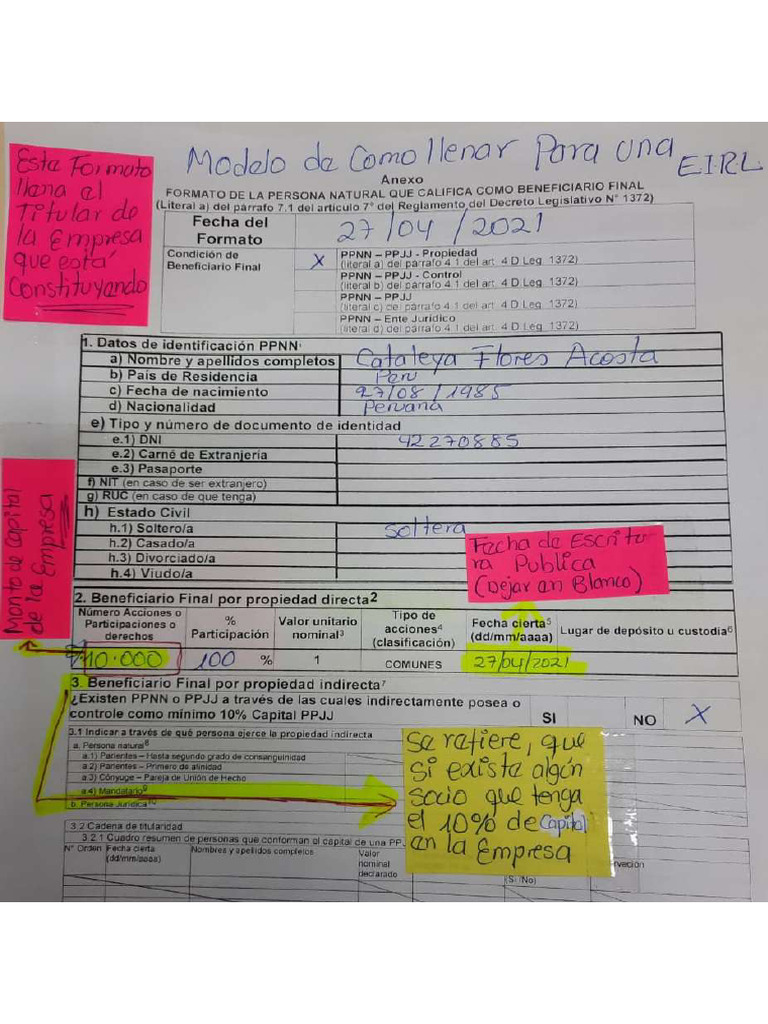 Modelo de Como llenar Para una E.I.R.L
Esta Formato
llana al
Titular de
la Empresa
que está
Constituyando
Anexo
FORMATO DE LA PERSONA NATURAL QUE CALIFICA COMO BENEFICIARIO FINAL
(Literal a) del párrafo 7.1 del artículo 7° del Reglamento del Decreto Legislativo N° 1372)
Fecha del Formato 27/04/2021
Condición de Beneficiario Final
X PPNN – PPJJ - Propiedad
(literal a) del párrafo 4.1 del art. 4 D.Leg. 1372)
PPNN – PPJJ - Control
(literal b) del párrafo 4.1 del art. 4 D.Leg. 1372)
PPNN – PPJJ
(literal c) del párrafo 4.1 del art. 4 D.Leg. 1372)
PPNN – Ente Jurídico
(literal d) del párrafo 4.1 del art. 4 D.Leg. 1372)
1. Datos de identificación PPNN¹
a) Nombre y apellidos completos Cataleya Flores Acosta
b) País de Residencia Peru
c) Fecha de nacimiento 27/08/1985
d) Nacionalidad Peruana
e) Tipo y número de documento de identidad
e.1) DNI 42270885
e.2) Carné de Extranjería
e.3) Pasaporte
f) NIT (en caso de ser extranjero)
g) RUC (en caso de que tenga)
h) Estado Civil
h.1) Soltero/a Soltera
h.2) Casado/a
h.3) Divorciado/a
h.4) Viudo/a
Monto de Capital
de la Empresa
Fecha de Escritu
ra Publica
(Dejar an Blanco)
2. Beneficiario Final por propiedad directa2
Número Acciones o Participaciones o derechos
% Participación
Valor unitario nominal³
Tipo de acciones⁴ (clasificación)
Fecha cierta⁵ (dd/mm/aaaa)
Lugar de depósito u custodia⁶
10.000 100 % 1 COMUNES 27/04/2021
3. Beneficiario Final por propiedad indirecta⁷
¿Existen PPNN o PPJJ a través de las cuales indirectamente posea o
controle como mínimo 10% Capital PPJJ SI NO X
3.1 Indicar a través de qué persona ejerce la propiedad indirecta
a. Persona natural⁸
a.1) Parientes – Hasta segundo grado de consanguinidad
a.2) Parientes – Primero de afinidad
a.3) Cónyuge – Pareja de Unión de Hecho
a.4) Mandatario⁹
b. Persona Jurídica¹⁰
Se rafiere, que
si exista algún
socio que tenga
el 10% de Capital
an la Empresa
3.2 Cadena de titularidad
3.2.1 Cuadro resumen de personas que conforman el capital de una PPJ
N° Orden
Fecha cierta (dd/mm/aaaa)
Nombres y apellidos completos
Valor nominal declarado
(Si /No)